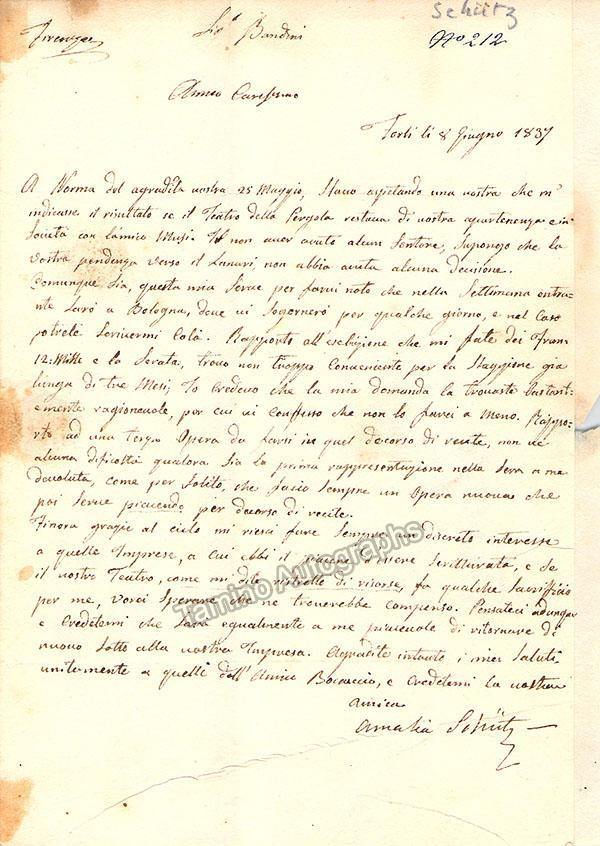 Schütz
Firenze Sigr Bandini No 212
Amico Carissimo
Forlì li 8 Giugno 1837
A Norma del agradita vostra 25 Maggio, stavo aspitando una vostra che m'
indicasse il risultato se il Teatro della Pergola restava di vostra apartenenza e in
Società con l'amico Musi. Il non aver avuto alcun Sentore, Supongo che la
vostra pendenza verso il Lanari, non abbia avuta alcuna decisione.
Comunque sia, questa mia Serve per farvi noto che nella Settimana entra-
nte Sarò a Bologna, dove vi Sogernerò per qualche giorno, e nel Caso
potrete Scrivermi Colà. Rapporto all'esebizione che mi fate dei Fran
12: Mille e la Serata, trovo non troppo Conveniente per la Staggione già
lunga di tre Mesi; Io Credevo che la mia domanda la trovaste bastant-
emente ragionevole, per cui vi Confesso che non lo farei a meno. Rappo-
rto ad una terza Opera da farsi in quel decorso di recite, non vi è
alcuna dificoltà qualora Sia la prima rappresentazione nella Sera a me
devoluta, come per Solito, che facio Sempre un Opera nuova che
poi Serve piacendo per decorso di recite.
Finora grazie al cielo mi riescì fare Sempre un discreto interesse
a quelle Imprese, a cui ebbi il piacere d'essere Scritturata, e se
il vostro Teatro, come mi dite ristretto di risorse, fa qualche Sacrifficio
per me, vorei Sperare che ne troverebbe compenso. Pensateci adunque
e Credetemi che Sarà egualmente a me piacevole di ritornare di
nuovo Sotto alla vostra Impresa. Agradite intanto i miei Saluti
unitamente a quelli dell'Amico Bocaccio, e Credetemi la vostra
Amica
Amalia Schütz
Tamino Autographs